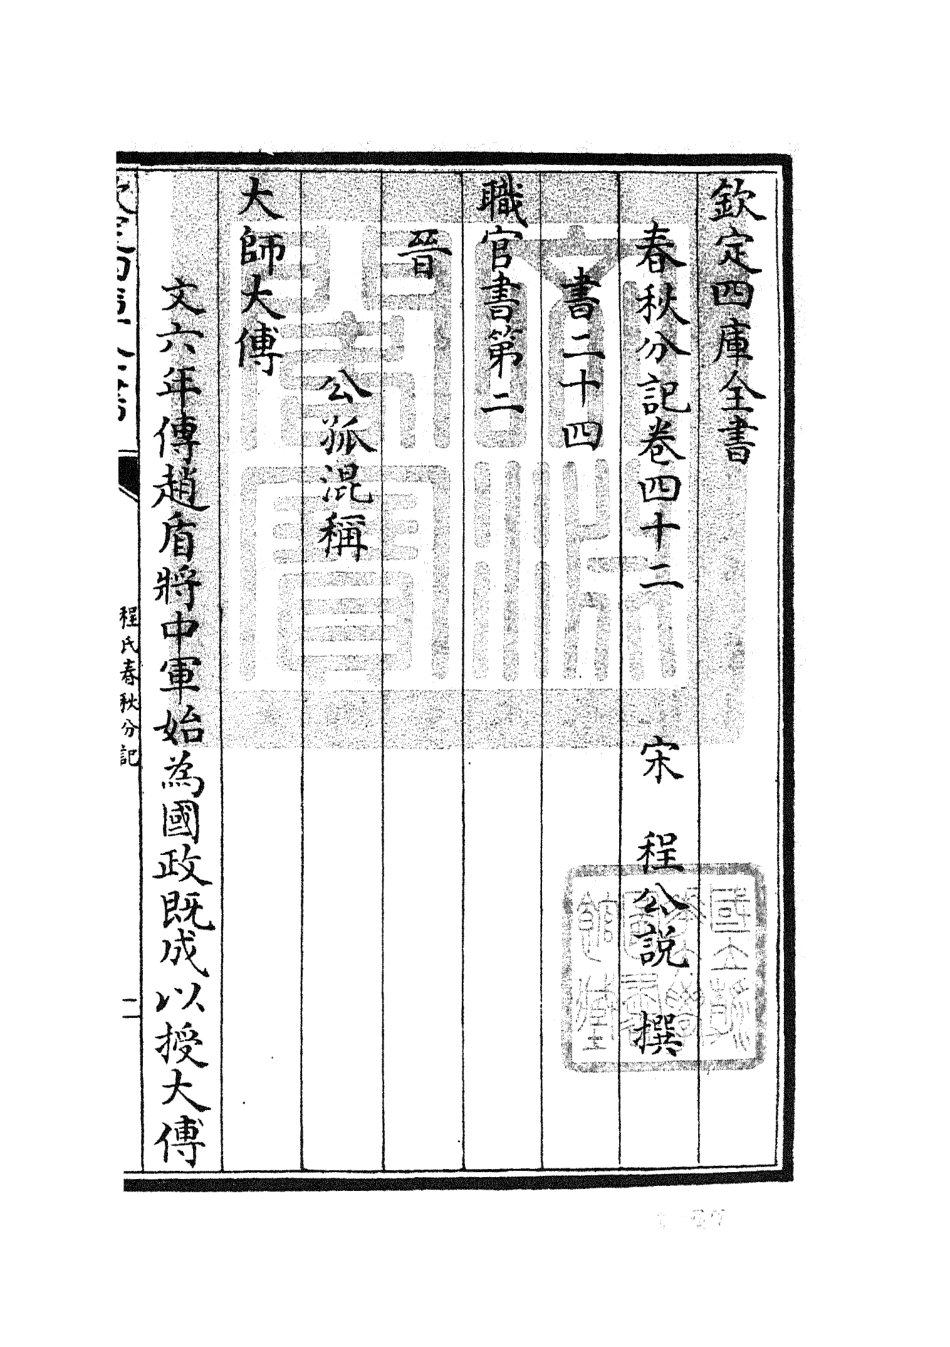 欽定四庫全書
春秋分記卷四十二 宋 程公說 撰
書二十四
職官書第二
晉
公孤混稱
大師大傅
文六年傳趙盾將中軍始為國政既成以授大傅
程氏春秋分記